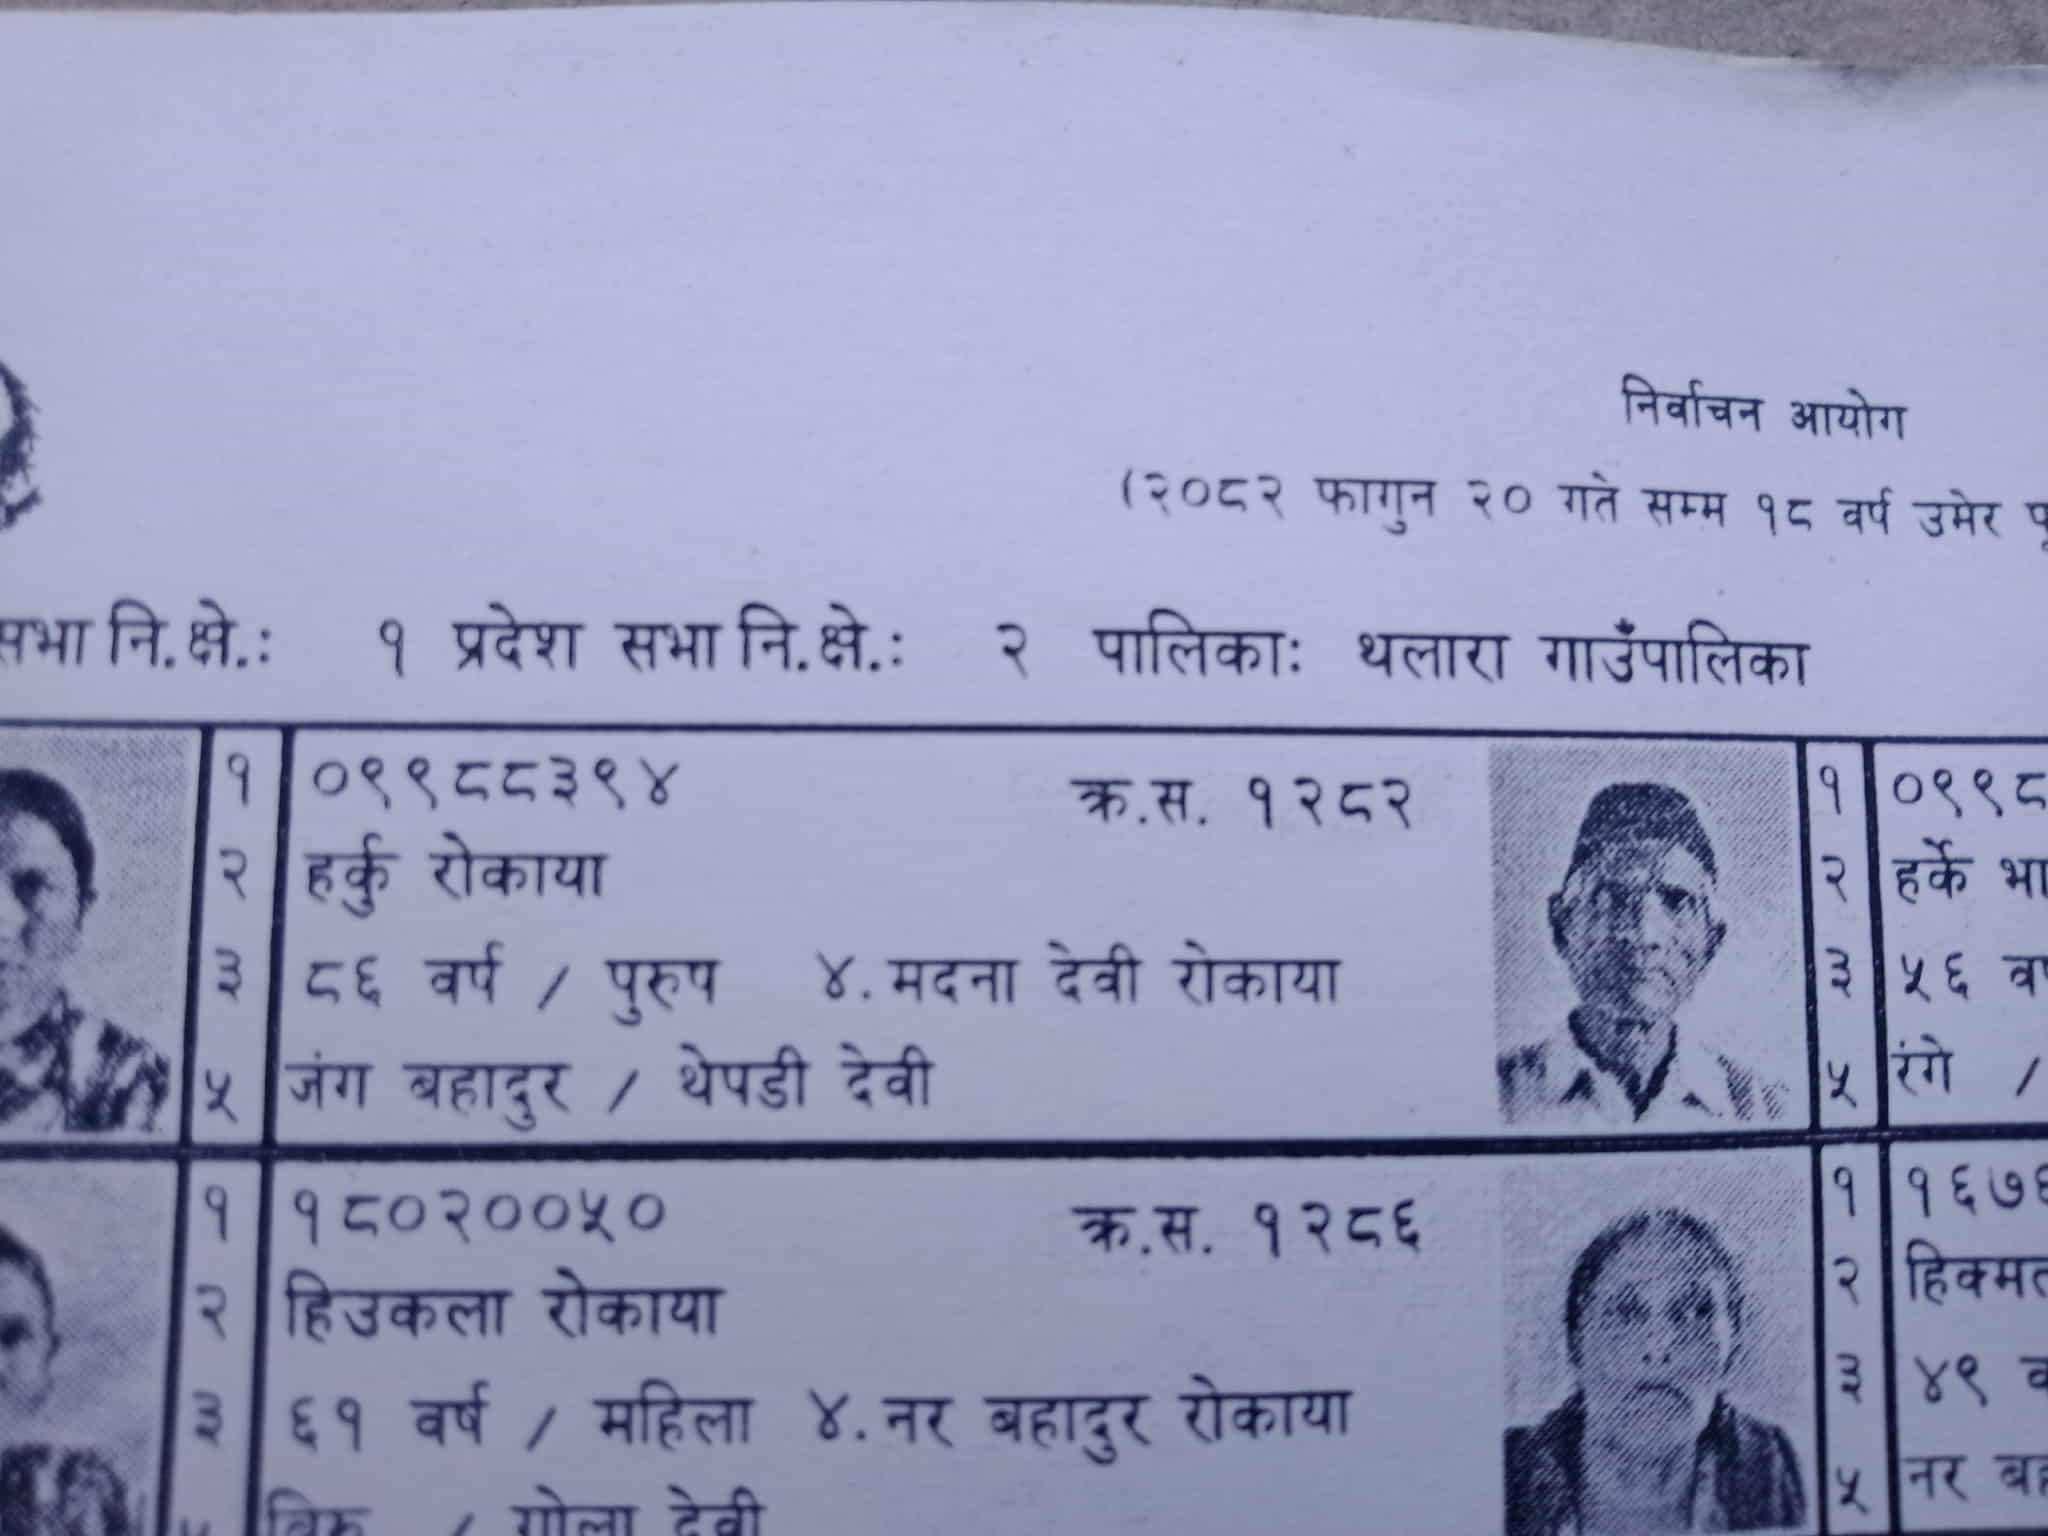 निर्वाचन आयोग
(२०८२ फागुन २० गते सम्म १८ वर्ष उमेर
सभा नि.क्षे.: १ प्रदेश सभा नि.क्षे.: २ पालिका: थलारा गाउँपालिका
१ ०९९८८३९४ क्र.स. १२८२
२ हर्कु रोकाया
३ ८६ वर्ष / पुरुष ४. मदना देवी रोकाया
५ जंग बहादुर / थेपडी देवी
१ ०९९८
२ हर्के
३ ५६
५ रंगे /
१ १८०२००५० क्र.स. १२८६
२ हिउकला रोकाया
३ ६१ वर्ष / महिला ४. नर बहादुर रोकाया
/ गोला देवी
१ १६७६
२ हिक्मत
३ ४९
५ नर